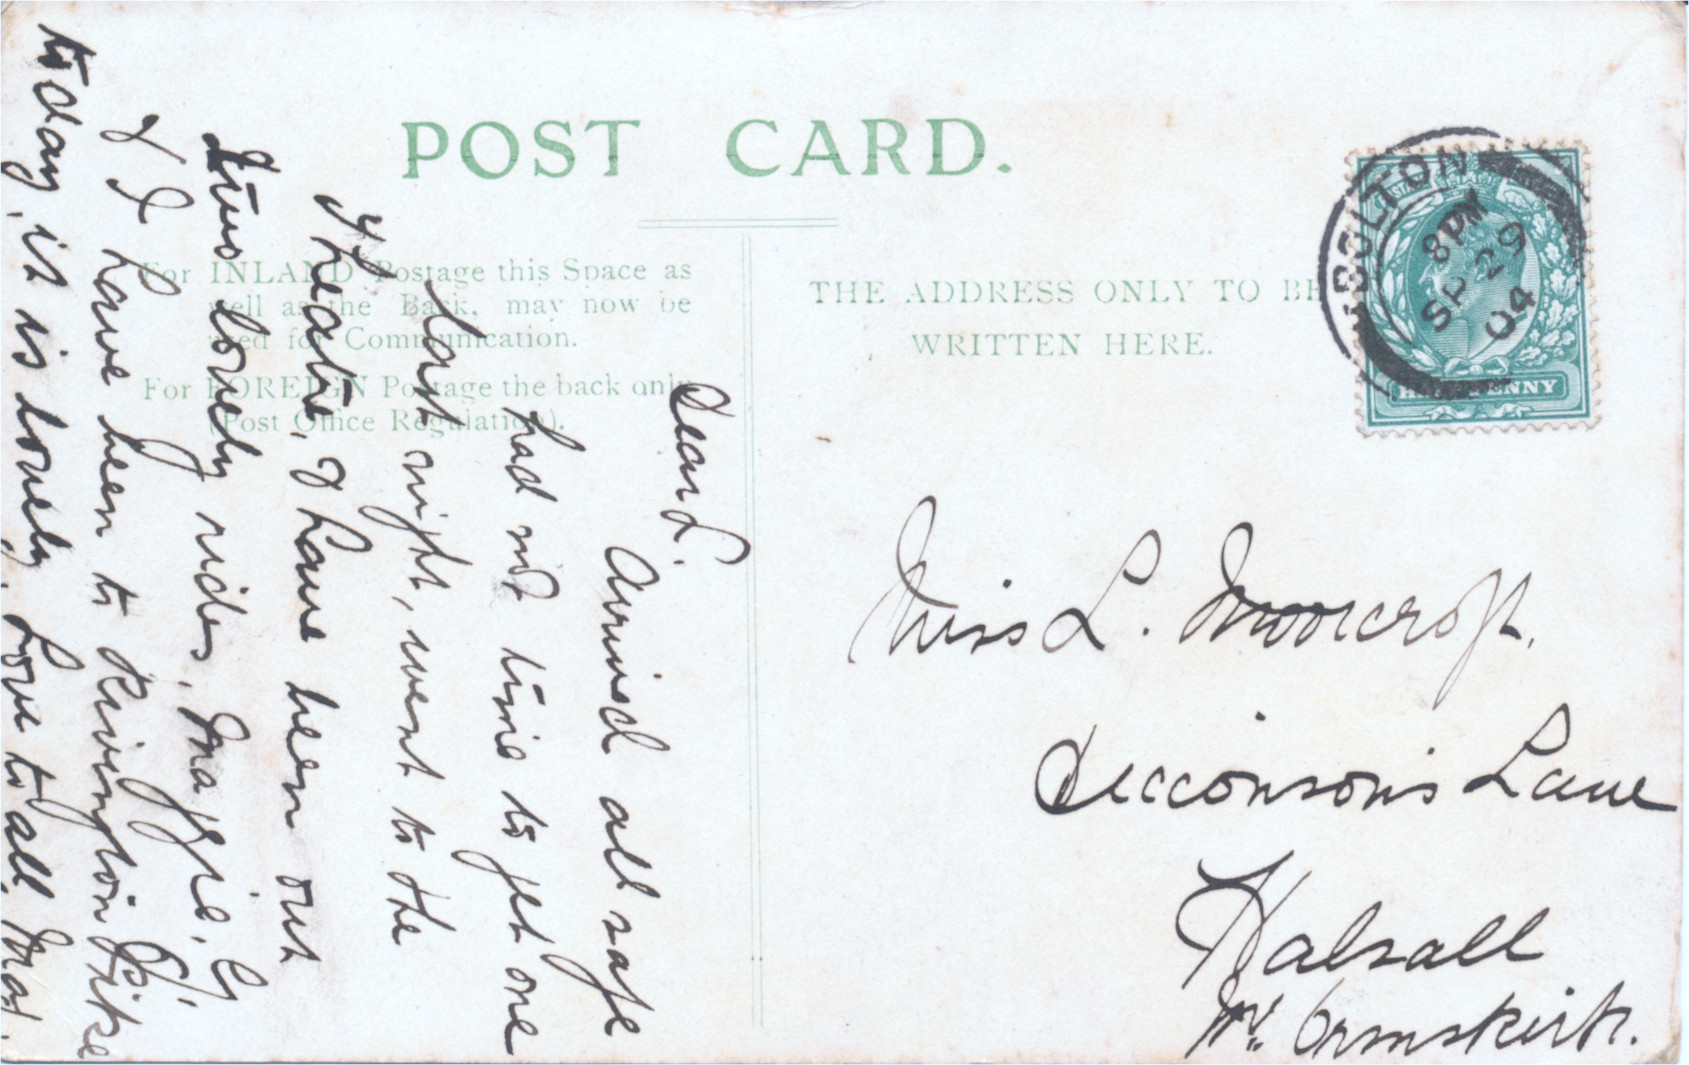 POST CARD.
For INLAND Postage this Space as
well as the Back, may now be
used for Communication.
For FOREIGN Postage the back only
(Post Office Regulation).
THE ADDRESS ONLY TO BE
WRITTEN HERE.
BOLTON
8 PM
SP 29
04
HALFPENNY
Dear L.
Arrived all safe
had not time to get one
last night, went to the
Theatre, & have been out
two lovely rides, Maggie,
& I have been to Rivington Pike
today, it is lovely, Love to all,
Miss L. Moorcroft.
Diccönson's Lane
Halsall
Nr. Ormskirk.